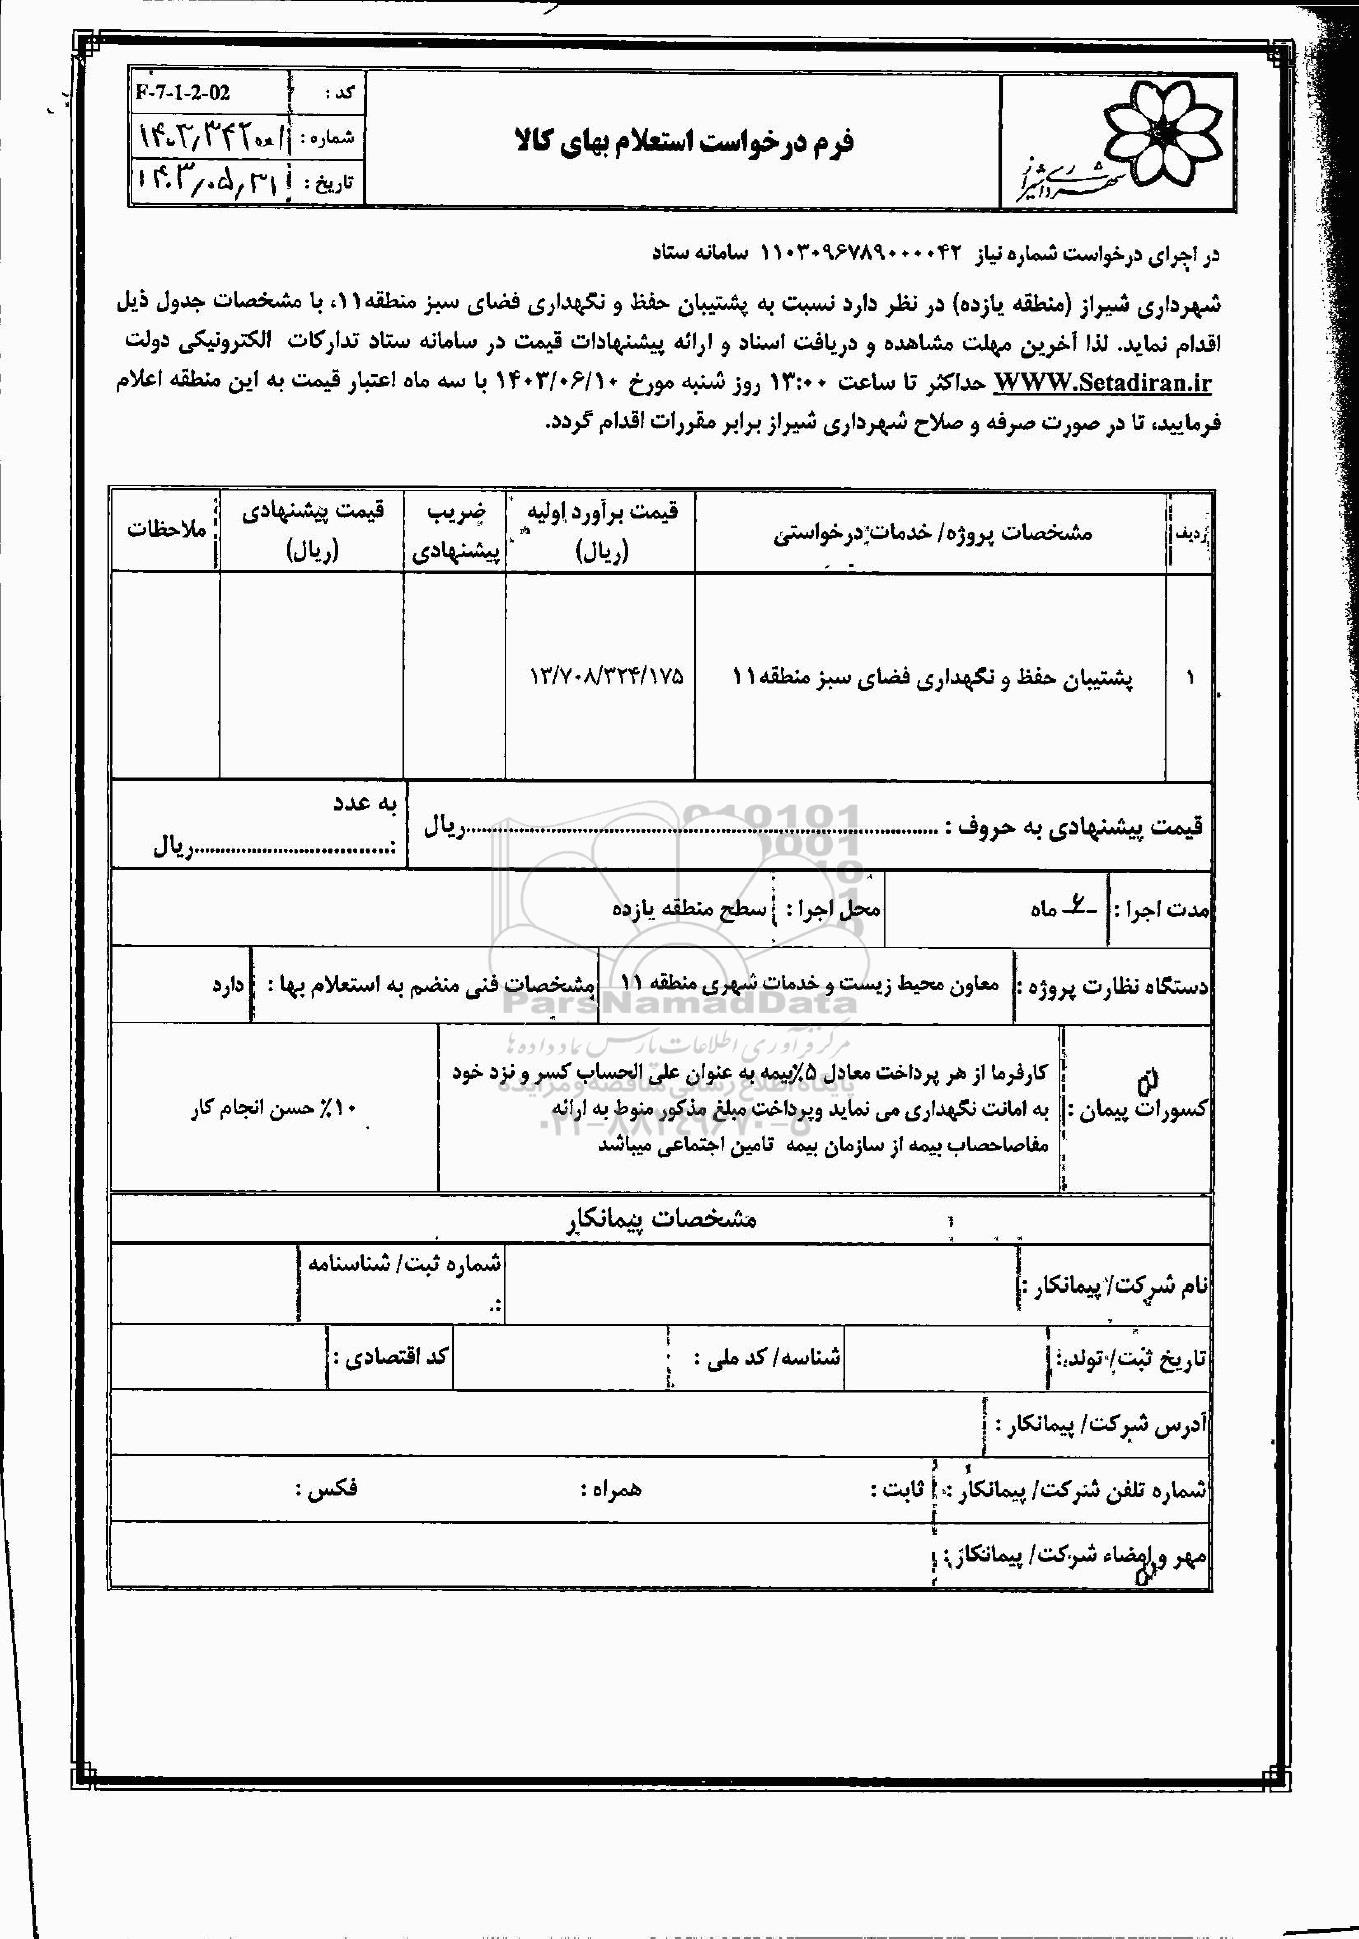 شهرداری شیراز
فرم درخواست استعلام بهای کالا
کد : F-7-1-2-02
شماره :
تاریخ : ۱۴۰۳/۰۵/۳۱
در اجرای درخواست شماره نیاز ۱۱۰۳۰۹۶۷۸۹۰۰۰۰۴۲ سامانه ستاد
شهرداری شیراز (منطقه یازده) در نظر دارد نسبت به پشتیبان حفظ و نگهداری فضای سبز منطقه۱۱، با مشخصات جدول ذیل
اقدام نماید. لذا آخرین مهلت مشاهده و دریافت اسناد و ارائه پیشنهادات قیمت در سامانه ستاد تدارکات الکترونیکی دولت
WWW.Setadiran.ir حداکثر تا ساعت ۱۳:۰۰ روز شنبه مورخ ۱۴۰۳/۰۶/۱۰ با سه ماه اعتبار قیمت به این منطقه اعلام
فرمایید، تا در صورت صرفه و صلاح شهرداری شیراز برابر مقررات اقدام گردد.
ردیف
مشخصات پروژه/ خدمات درخواستی
قیمت برآورد اولیه
(ریال)
ضریب
پیشنهادی
قیمت پیشنهادی
(ریال)
ملاحظات
۱
پشتیبان حفظ و نگهداری فضای سبز منطقه۱۱
۱۳/۷۰۸/۳۲۴/۱۷۵
قیمت پیشنهادی به حروف : ..........ریال
به عدد
:..........ریال
مدت اجرا : ۶ ماه
محل اجرا : سطح منطقه یازده
دستگاه نظارت پروژه : معاون محیط زیست و خدمات شهری منطقه ۱۱
مشخصات فنی منضم به استعلام بها : دارد
کسورات پیمان :
کارفرما از هر پرداخت معادل ۵٪بیمه به عنوان علی الحساب کسر و نزد خود
به امانت نگهداری می نماید وپرداخت مبلغ مذکور منوط به ارائه
مفاصاحصاب بیمه از سازمان بیمه تامین اجتماعی میباشد
۱۰٪ حسن انجام کار
مشخصات پیمانکار
نام شرکت/ پیمانکار :
شماره ثبت/ شناسنامه
:
تاریخ ثبت/ تولد :
شناسه/ کد ملی :
کد اقتصادی :
آدرس شرکت/ پیمانکار :
شماره تلفن شرکت/ پیمانکار : ثابت : همراه : فکس :
مهر و امضاء شرکت/ پیمانکار :
ParsNamadData
مرکز فرآوری اطلاعات پارس نماد داده ها
پایگاه اطلاع رسانی مناقصه و مزایده
۰۲۱-۸۸۳۴۹۶۷۰-۵